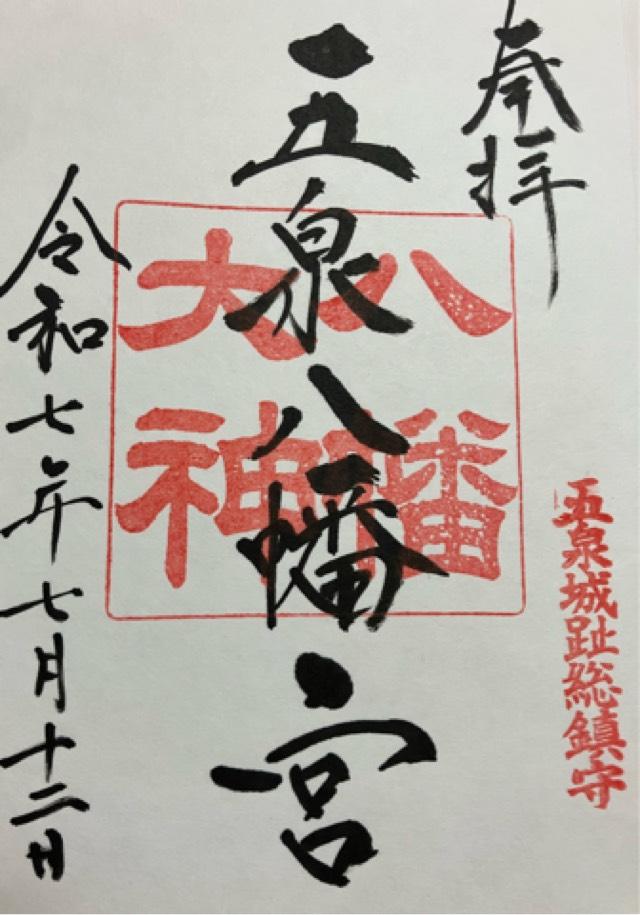 奉拝
五泉城趾総鎮守
五泉八幡宮
八幡
大神
令和七年七月十二日